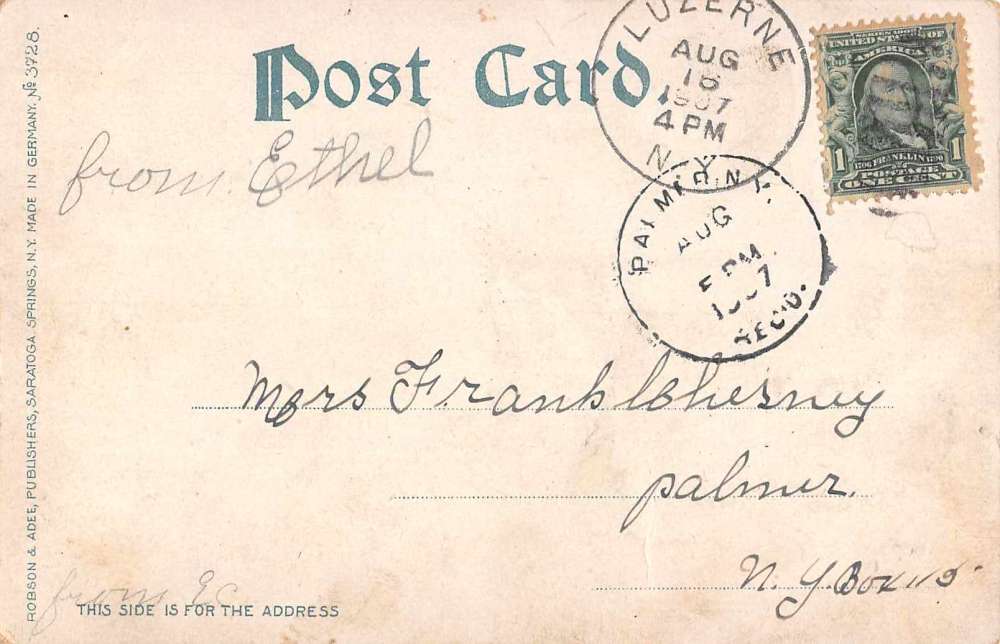 Post Card
LUZERNE
AUG
1907
4 PM
N.Y.
SERIES 1902
UNITED STATES OF
AMERICA
1 1706 FRANKLIN 1790 1
POSTAGE
ONE CENT
from Ethel
PALMER, N.Y.
AUG
PM
1907
REC'D.
Mrs Frank Chesney
palmer.
N. Y Box
from E
THIS SIDE IS FOR THE ADDRESS
ROBSON & ADEE, PUBLISHERS, SARATOGA SPRINGS, N.Y. MADE IN GERMANY. № 3728.